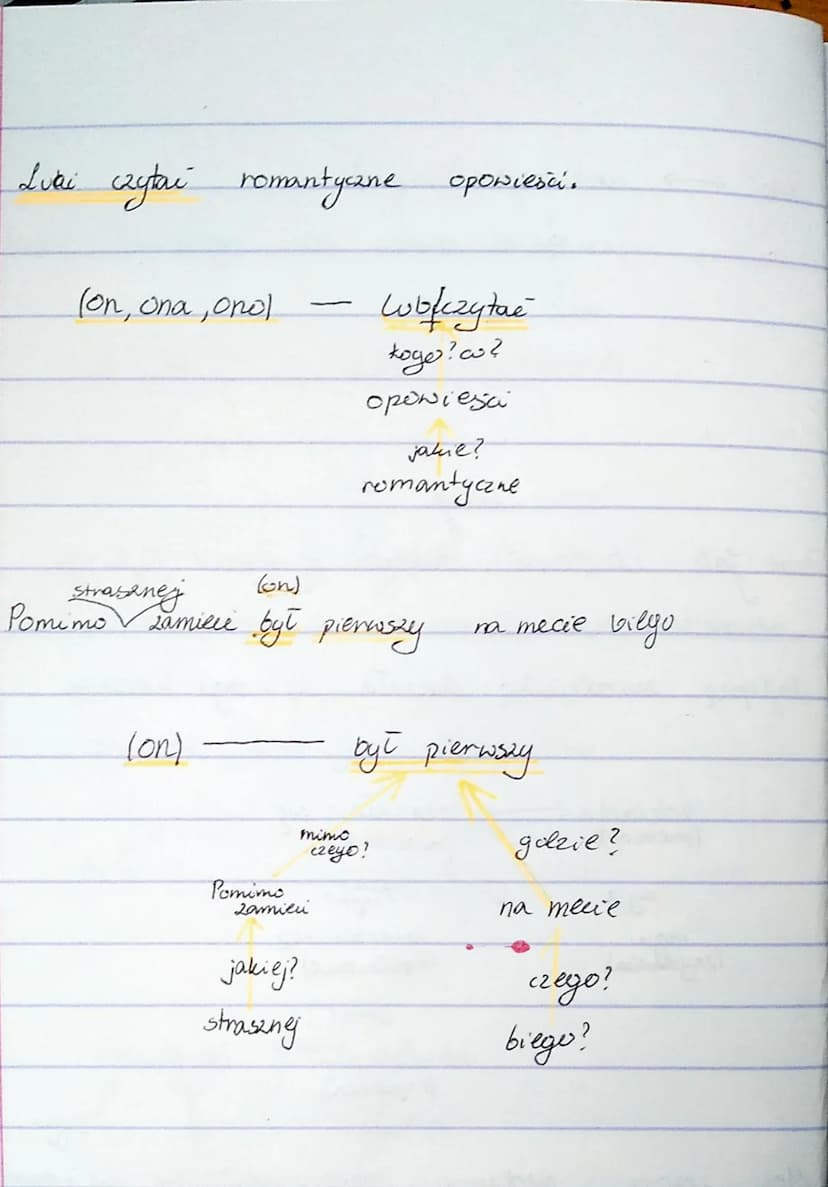 Lubi czytać romantyczne opowieści.
(on, ona, ono) — lubi czytać
kogo? co?
opowieści
jakie?
romantyczne
strasznej (on)
Pomimo zamieci był pierwszy na mecie biegu
(on) — był pierwszy
mimo czego? gdzie?
Pomimo zamieci na mecie
jakiej? czego?
strasznej biego?